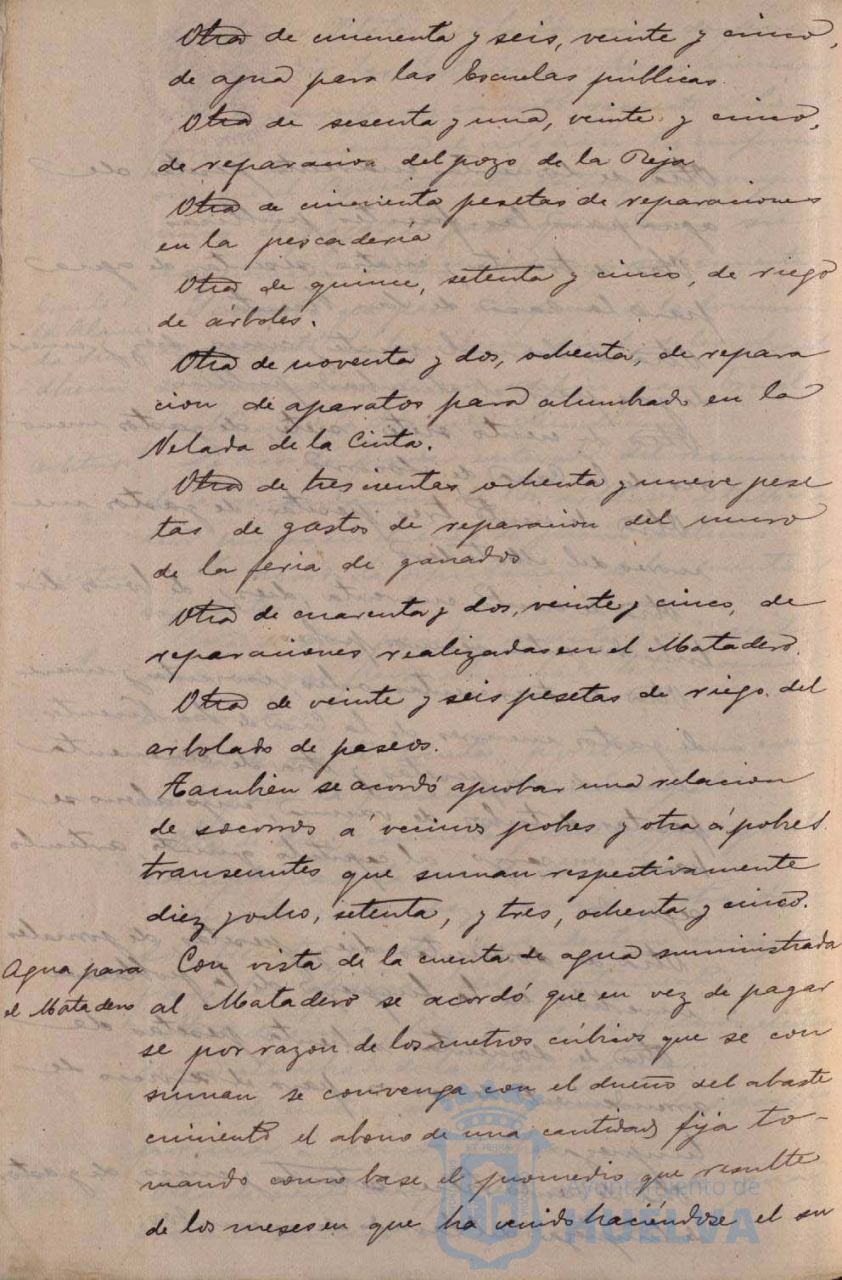 Otra de cincuenta y seis, veinte y cinco,
de agua para las Escuelas públicas.
Otra de sesenta y una, veinte y cinco,
de reparacion del pozo de la Reja
Otra de cincuenta pesetas de reparaciones
en la pescadería
Otra de quince, setenta y cinco, de riego
de árboles.
Otra de noventa y dos, ochenta, de repara
cion de aparatos para alumbrado en la
Velada de la Cinta.
Otra de trescientas ochenta y nueve pese
tas de gastos de reparacion del muro
de la feria de ganados
Otra de cuarenta y dos, veinte y cinco, de
reparaciones realizadas en el Matadero.
Otra de veinte y seis pesetas de riego del
arbolado de paseos.
Tambien se acordó aprobar una relacion
de socorros á vecinos pobres y otra á pobres
transeuntes que suman respectivamente
diez y ocho, setenta, y tres, ochenta y cinco.
Agua para
el Matadero
Con vista de la cuenta de agua suministrada
al Matadero se acordó que en vez de pagar
se por razon de los metros cúbicos que se con
suman se convenga con el dueño del abaste
cimiento el abono de una cantidad fija to-
mando como base el promedio que resulte
de los meses en que ha venido haciéndose el su
Ayuntamiento de
HUELVA